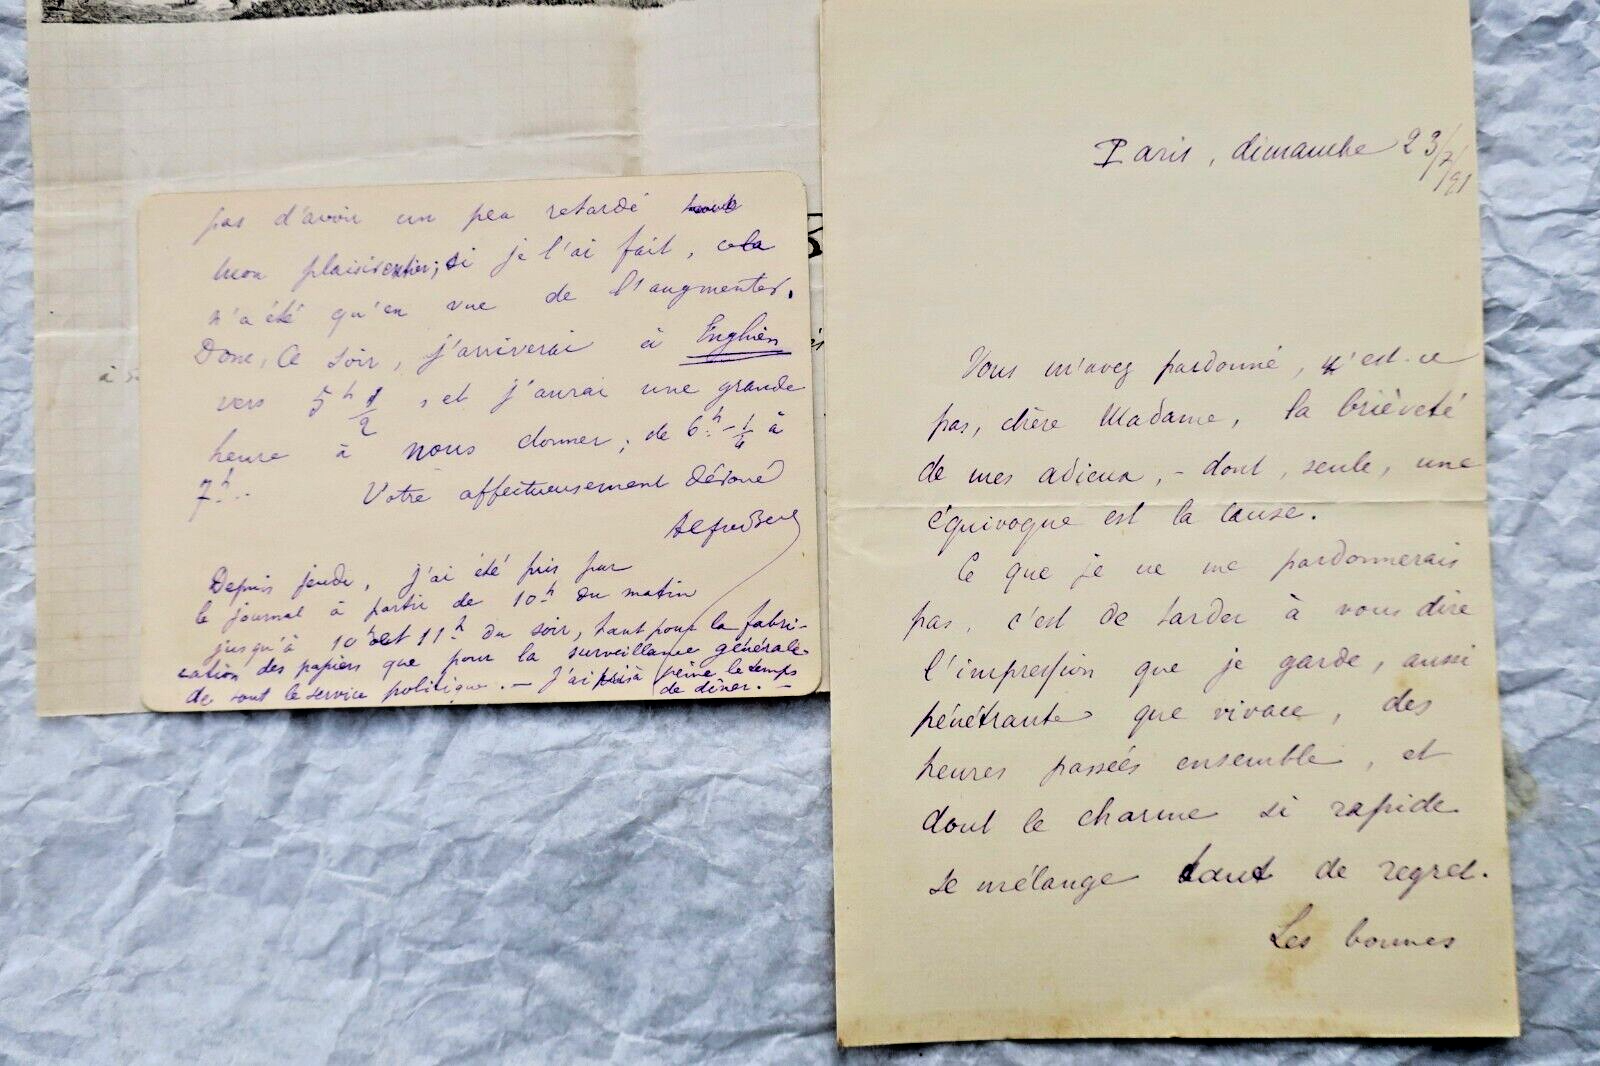 pas d'avoir un peu retardé
mon plaisir entier; si je l'ai fait, cela
n'a été qu'en vue de l'augmenter.
Donc, ce soir, j'arriverai à Enghien
vers 5h 1/2, et j'aurai une grande
heure à nous donner; de 6h - 1/4 à
7h..
Votre affectueusement dévoué
Depuis jeudi, j'ai été pris par
le journal à partir de 10h du matin
jusqu'à 10h et 11h du soir, tant pour la fabri-
cation des papiers que pour la surveillance générale
de tout le service politique. — J'ai à peine le temps
de dîner. —
à
Paris, dimanche 23/7/91
Vous m'avez pardonné, n'est-ce
pas, chère Madame, la brièveté
de mes adieux, - dont, seule, une
équivoque est la cause.
Ce que je ne me pardonnerais
pas, c'est de tarder à vous dire
l'impression que je garde, aussi
pénétrante que vivace, des
heures passées ensemble, et
dont le charme si rapide
se mélange tant de regret.
Les bonnes